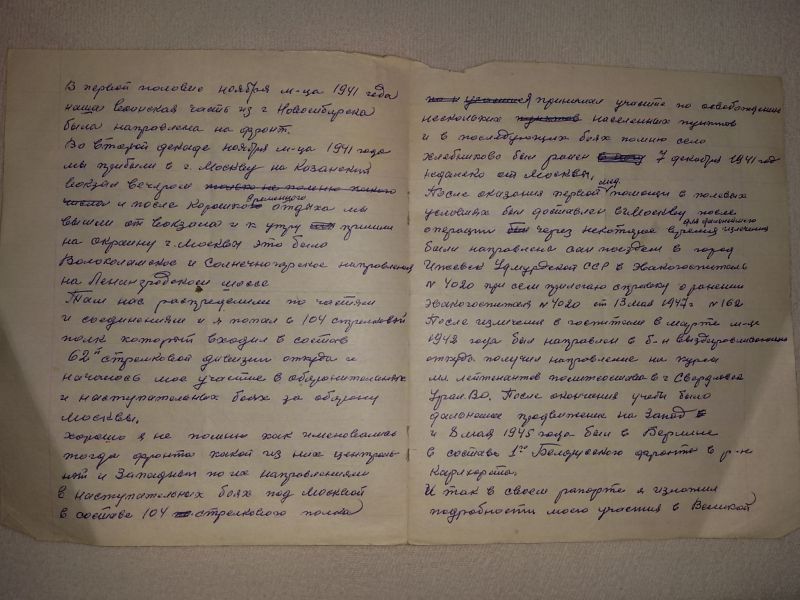 В первой половине ноября м-ца 1941 года
наша воинская часть из г Новосибирска
была направлена на фронт.
Во второй декаде ноября м-ца 1941 года
мы прибыли в г. Москву на Казанский
вокзал вечером
и после короткого временного отдыха мы
вышли от вокзала и к утру пришли
на окраину г. Москвы это было
Волоколамское и Солнечногорское направления
на Ленинградском шоссе
Там нас распределили по частям
и соединениям и я попал в 104 стрелковый
полк который входил в состав
62й стрелковой дивизии откуда и
началось мое участие в оборонительных
и наступательных боях за оборону
Москвы.
хорошо я не помню как именовались
тогда фронта какой из них централь-
ный и Западный по их направлениям
в наступательных боях под Москвой
в составе 104 стрелкового полка
принимал участие по освобождению
нескольких населенных пунктов
и в последующих боях помню село
Хлебниково был ранен 7 декабря 1941 год
недалеко от Москвы.
После оказания первой мед. помощи в полевых
условиях был доставлен в г Москву после
операции через некоторое время для дальнейшего излечения
были направлены сан поездом в город
Ижевск Удмурдской ССР в Эвакогоспиталь
№ 4020 при сем прилогаю справку о ранении
Эвакогоспиталя № 4020 от 13 мая 1947 г № 162
После излечения в госпитале в марте м-це
1942 года был направлен в б-н выздоровливающих
откуда получил направление на курсы
мл лейтенантов политсостава в г Свердловск
УралВО. После окончания учебы было
дальнейшее продвижение на Запад
и 8 мая 1945 года был в Берлине
в составе 1го Белорусского фронта в р-не
Карлхорста.
И так в своем рапорте я изложил
подробности моего участия в Великой